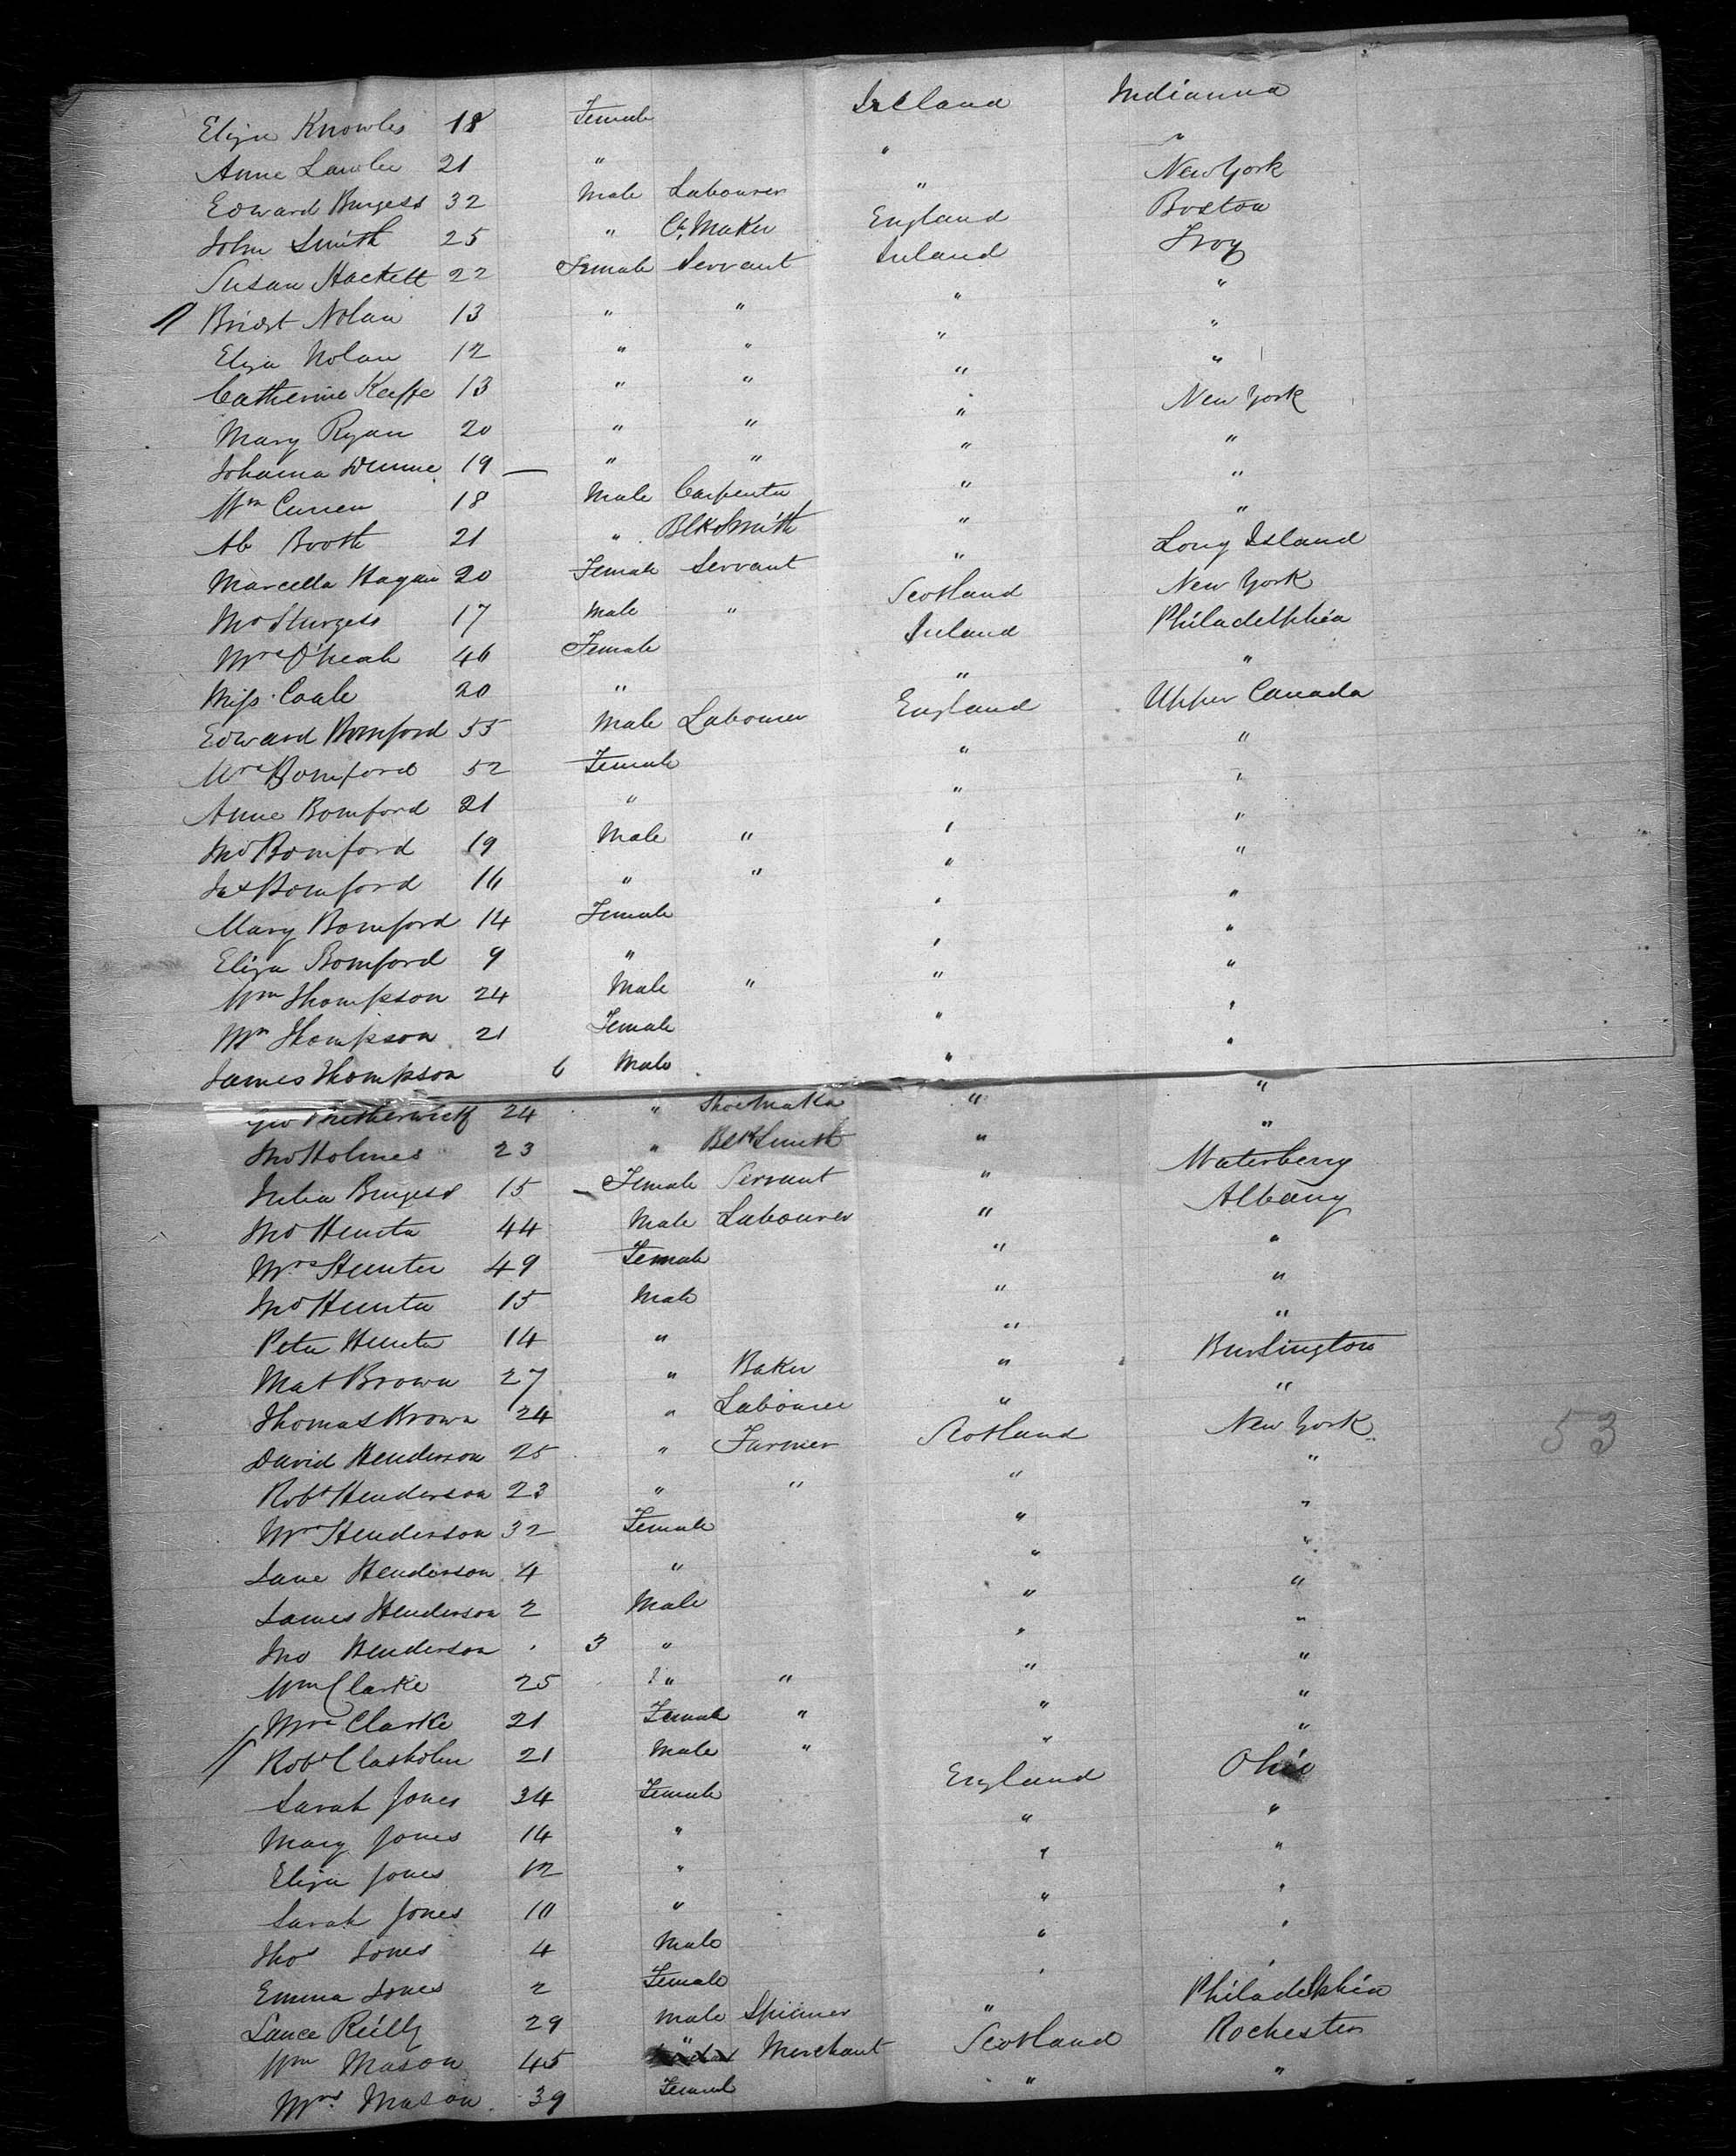 Eliza Knowles 18 Female Ireland Indianna
Anne Lawler 21 " " "
Edward Burgess 32 Male Labourer " New York
John Smith 25 " Maker England Boston
Susan Hackett 22 Female Servant Ireland Troy
Bridgt Nolan 13 " " " "
Eliza Nolan 12 " " " "
Catherine Keeffe 13 " " " "
Mary Ryan 20 " " " New York
Johanna 19 — " " " "
Wm Curren 18 Male Carpenter " "
Ab Booth 21 " BlkSmith " "
Marcella Hagan 20 Female Servant " Long Island
Mr Sturgess 17 Male " Scotland New York
Mrs 46 Female Ireland Philadelphia
Miss Coale 20 " " "
Edward Bomford 55 Male Labourer England Upper Canada
Mrs Bomford 52 Female " "
Anne Bomford 21 " " "
Jno Bomford 19 Male " " "
Jas Bomford 16 " " " "
Mary Bomford 14 Female " "
Eliza Bomford 9 " " "
Wm Thompson 24 Male " " "
Mrs Thompson 21 Female " "
James Thompson 6 Male " "
Geo 24 " Shoemaker " "
Jno Holmes 23 " BlkSmith " "
Julia Burgess 15 — Female Servant " Waterberry
Jno Hunter 44 Male Labourer " Albany
Mrs Hunter 49 Female " "
Jno Hunter 15 Male " "
Peter Hunter 14 " " "
Mat Brown 27 " Baker " Burlington
Thomas Brown 24 " Labourer " "
David Henderson 25 " Farmer Scotland New York
Robt Henderson 23 " " " "
Mrs Henderson 32 Female " "
Jane Henderson 4 " " "
James Henderson 2 Male " "
Jno Henderson 3 " " "
Wm Clarke 25 " " " "
Mrs Clarke 21 Female " " "
Robt Clasholm 21 Male " " "
Sarah Jones 34 Female England Ohio
Mary Jones 14 " " "
Eliza Jones 12 " " "
Sarah Jones 10 " " "
Thos Jones 4 Male " "
Emma Jones 2 Female " "
Lance Reilly 29 Male Spinner " Philadelphia
Wm Mason 45 " Merchant Scotland Rochester
Mrs Mason 39 Female " "
53